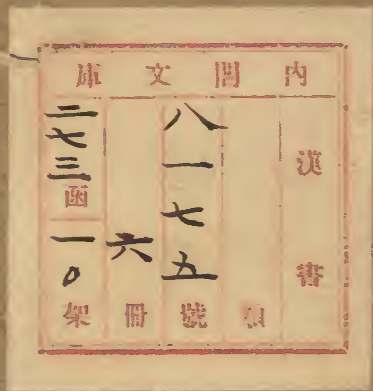 内閣文庫
漢書
八一七五號
六冊
二七三函一〇架